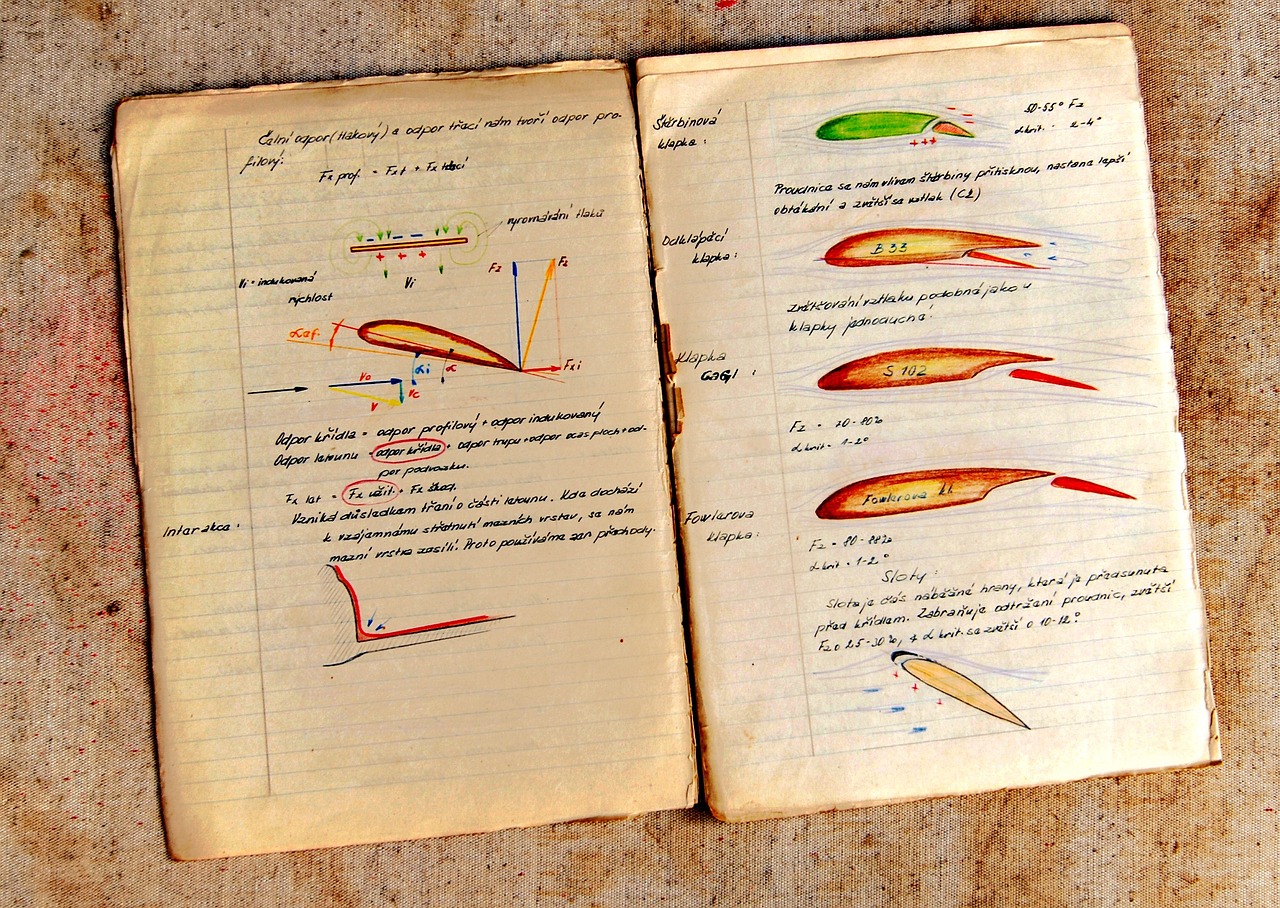 Čelní odpor (tlakový) a odpor třecí nám tvoří odpor pro-
filový:
Fx prof. = Fxt + Fx třecí
vyrovnávání tlaků
Vi = indukovaná
rychlost
Vi
Fz
Fz
α ef.
αi
α
Fxi
Vo
Vc
V
Odpor křídla = odpor profilový + odpor indukovaný
Odpor letounu = odpor křídla + odpor trupu + odpor ocas ploch + od-
por podvozku.
Fx let = Fx užit. + Fx škod.
Interakce :
Vzniká důsledkem tření o části letounu. Kde dochází
k vzájemnému střetnutí mezních vrstev, se nám
mezní vrstva zesílí. Proto používáme zon přechody.
Štěrbinová
klapka :
50-55° Fz
α krit. = 2-4°
Proudnice se nám vlivem štěrbiny přitisknou, nastane lepší
obtékání a zvětší se vztlak (Cz)
Odklápěcí
klapka :
B 33
zvětšování vztlaku podobná jako u
klapky jednoduché.
Klapka
GaGl :
S 102
Fz = 70-80%
α krit = 1-2°
Fowlerova kl.
Fowlerova
klapka :
Fz = 80-88%
α krit = 1-2°
Sloty :
Slot je část náběžné hrany, která je předsunuta
před křídlem. Zabraňuje odtržení proudnic, zvětší
Fz o 25-30%, α krit. se zvětší o 10-12°